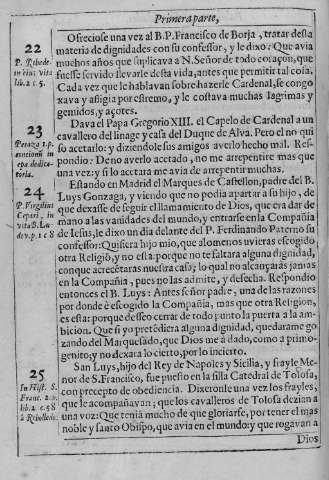 Primera parte,
22
P. Ribade.
in eius vita
lib. 2 c. 5.
Ofreciose una vez al B.P. Francisco de Borja, tratar desta
materia de dignidades con su confessor, y le dixo: Que avia
muchos años que suplicava a N. Señor de todo coraçon, que
fuesse servido llevarle desta vida, antes que permitir tal cosa.
Cada vez que le hablavan sobre hazerle Cardenal, se congo
xava y afligia por estremo, y le costava muchas lagrimas y
gemidos, y açotes.
23
Dava el Papa Gregorio XIII. el Capelo de Cardenal a un
cavallero del linage y casa del Duque de Alva. Pero el no qui
so acetarlo: y diziendole sus amigos averlo hecho mal. Res-
pondio: De no averlo acetado, no me arrepentire mas que
una vez: y si lo acetara me avia de arrepentir muchas.
24
P. Virgilius
Cepari, in
vita B. Lu-
dov. p. 1 c 8
Estando en Madrid el Marques de Castellon, padre del B.
Luys Gonzaga, y viendo que no podia apartar a su hijo, de
que dexasse de seguir el llamamiento de Dios, que era dar de
mano a las vanidades del mundo, y entrarse en la Compañia
de Iesus, le dixo un dia delante del P. Ferdinando Paterno su
confessor: Quisiera hijo mio, que alomenos uvieras escogido
otra Religiõ, y no esta: porque no te faltara alguna dignidad,
conque acrecẽtaras nuestra casa; lo qual no alcançarás jamas
en la Compañia, pues no las admite, y desecha. Respondio
entonces el B. Luys: Antes señor padre, una de las razones
por donde è escogido la Compañia, mas que otra Religion,
es esta: porque desseo cerrar de todo punto la puerta a la am-
bicion. Que si yo pretẽdiera alguna dignidad, quedarame go
zando del Marquesado, que Dios me à dado, como a primo-
genito; y no dexara lo cierto, por lo incierto.
25
In Hist. S.
Franc. 2. p.
lib. 2 c. 58
à Rebolledo.
San Luys, hijo del Rey de Napoles y Sicilia, y frayle Me-
nor de S. Francisco, fue puesto en la silla Catedral de Tolosa,
con precepto de obediencia. Dixeronle una vez los frayles,
que le acompañavan; que los cavalleros de Tolosa dezian a
una voz: Que tenia mucho de que gloriarse, por tener el mas
noble y santo Obispo, que avia en el mundo: y que rogavan a
Dios